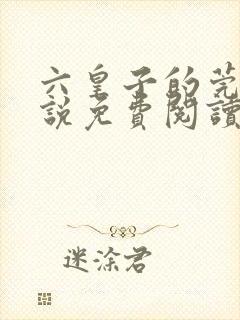 六皇子的莞
說免費閱讀
迷涂君